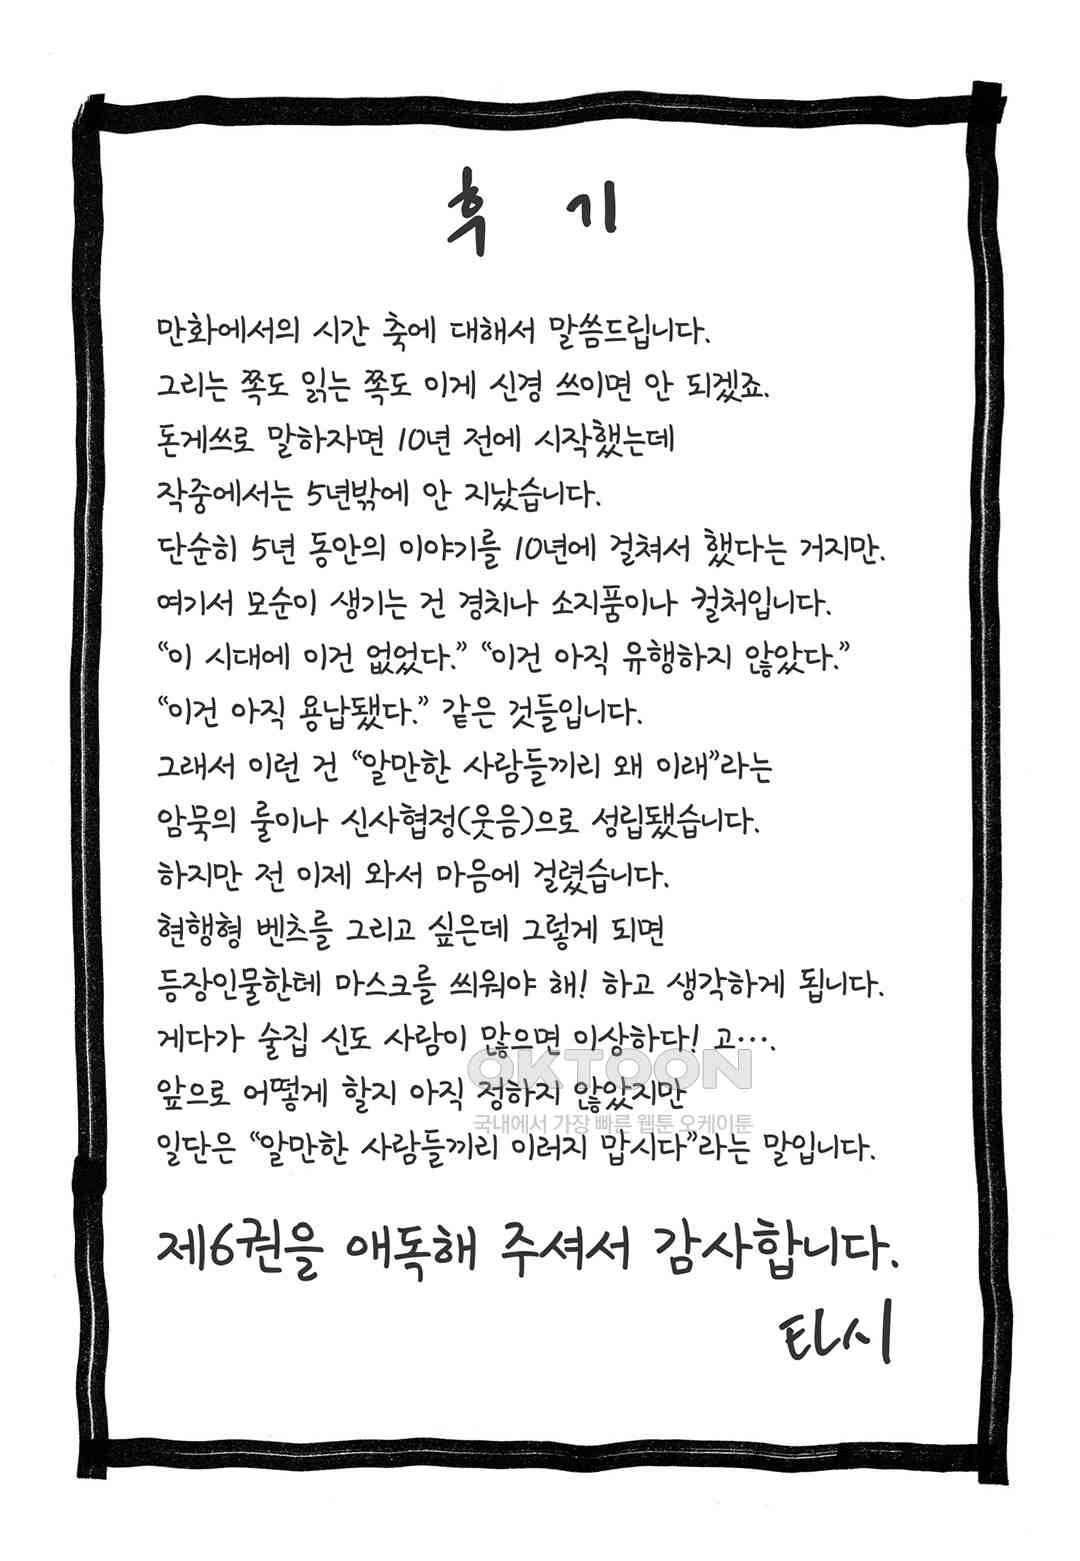 후 기
만화에서의 시간 축에 대해서 말씀드립니다.
그리는 쪽도 읽는 쪽도 이게 신경 쓰이면 안 되겠죠.
돈게쓰로 말하자면 10년 전에 시작했는데
작중에서는 5년밖에 안 지났습니다.
단순히 5년 동안의 이야기를 10년에 걸쳐서 했다는 거지만.
여기서 모순이 생기는 건 경치나 소지품이나 컬처입니다.
“이 시대에 이건 없었다.” “이건 아직 유행하지 않았다.”
“이건 아직 용납됐다.” 같은 것들입니다.
그래서 이런 건 “알만한 사람들끼리 왜 이래”라는
암묵의 룰이나 신사협정(웃음)으로 성립됐습니다.
하지만 전 이제 와서 마음에 걸렸습니다.
현행형 벤츠를 그리고 싶은데 그렇게 되면
등장인물한테 마스크를 씌워야 해! 하고 생각하게 됩니다.
게다가 술집 신도 사람이 많으면 이상하다! 고….
OKTOON
앞으로 어떻게 할지 아직 정하지 않았지만
국내에서 가장 빠른 웹툰 오케이툰
일단은 “알만한 사람들끼리 이러지 맙시다”라는 말입니다.
제6권을 애독해 주셔서 감사합니다.
타시